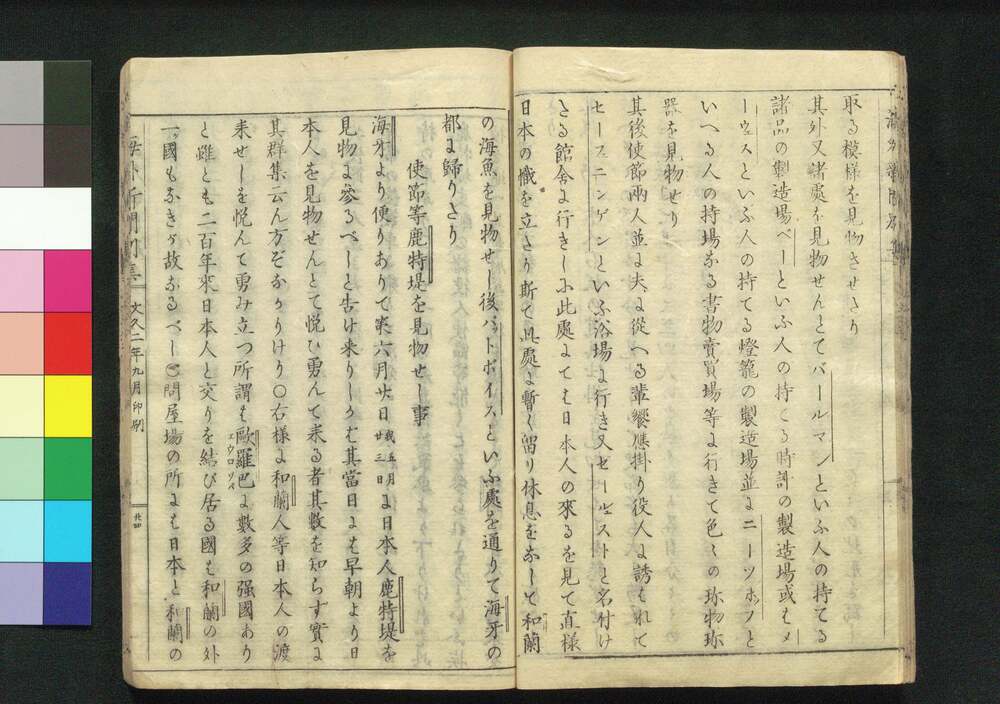 取る模様を見物させたり
其外又諸處を見物せんとてバールマンといふ人の持てる
諸品の製造場ベーといふ人の持たる時計の製造場或はメ
ーウスといふ人の持てる燈籠の製造場並にニーツホフと
いへる人の持場なる書物賣買場等に行きて色々の珍物珍
器を見物せり
其後使節兩人並に夫に從へる輩饗應掛り役人に誘はれて
セースニンゲンといふ浴場に行き又セールストと名付け
たる館舍に行きしに此處にても日本人の來るを見て直樣
日本の幟を立たり斯て此處に暫く留り休息をなして和蘭
の海魚を見物せし後バットホイスといふ處を通りて海牙の
都に歸りたり
使節等鹿特堤を見物せし事
海牙より便りありて第六月廿日我五月廿三日に日本人鹿特堤を
見物に參るべしと告け来りしかは其當日には早朝より日
本人を見物せんとて悦ひ勇んて来る者其數を知らす實に
其群集云ん方そなかりけり〇右様に和蘭人等日本人の渡
来せしを悦んて勇み立つ所謂は歐羅巴エウロッパに數多の强國あり
と雖とも二百年來日本人と交りを結び居る國は和蘭の外
一國もなきか故なるべし 問屋場の所には日本と和蘭の
海外新聞別集 文久二年九月印刷 廿四